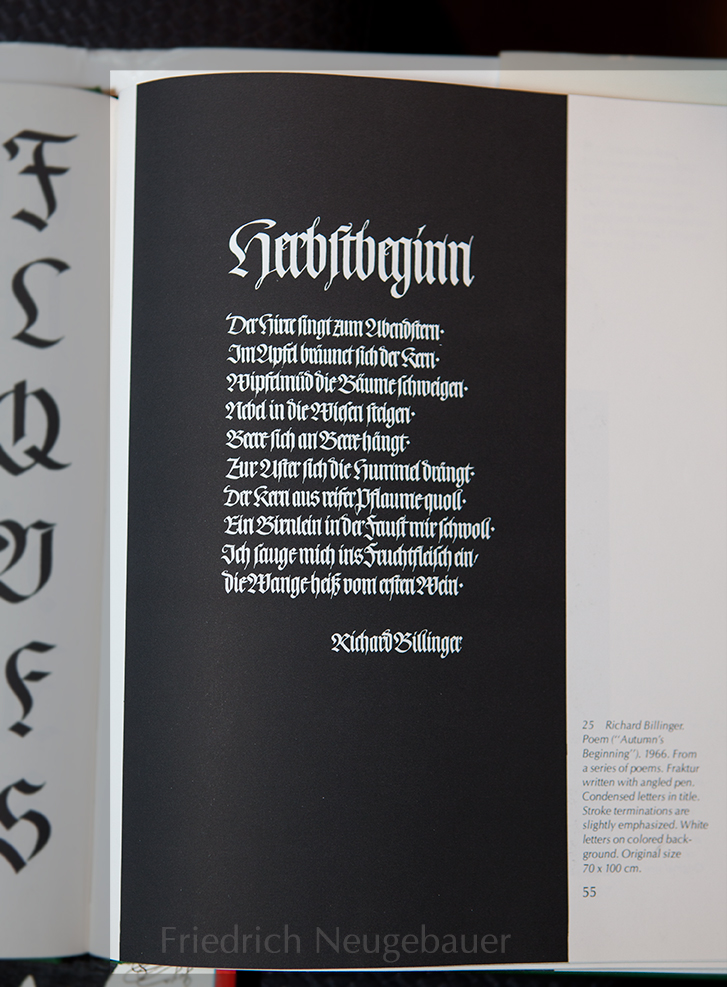 F
L
Q
V
F
S
Herbstbeginn
Der Hirte singt zum Abendstern·
Im Apfel bräunet sich der Kern·
Wipfelmüd die Bäume schweigen·
Nebel in die Wiesen steigen·
Beere sich an Beere hängt·
Zur Aster sich die Hummel drängt·
Der Kern aus reifer Pflaume quoll·
Ein Birnlein in der Faust mir schwoll·
Ich sauge mich ins Fruchtfleisch ein/
die Wange heiß vom ersten Wein·
Richard Billinger
25 Richard Billinger.
Poem ("Autumn's
Beginning"). 1966. From
a series of poems. Fraktur
written with angled pen.
Condensed letters in title.
Stroke terminations are
slightly emphasized. White
letters on colored back-
ground. Original size
70 x 100 cm.
55
Friedrich Neugebauer